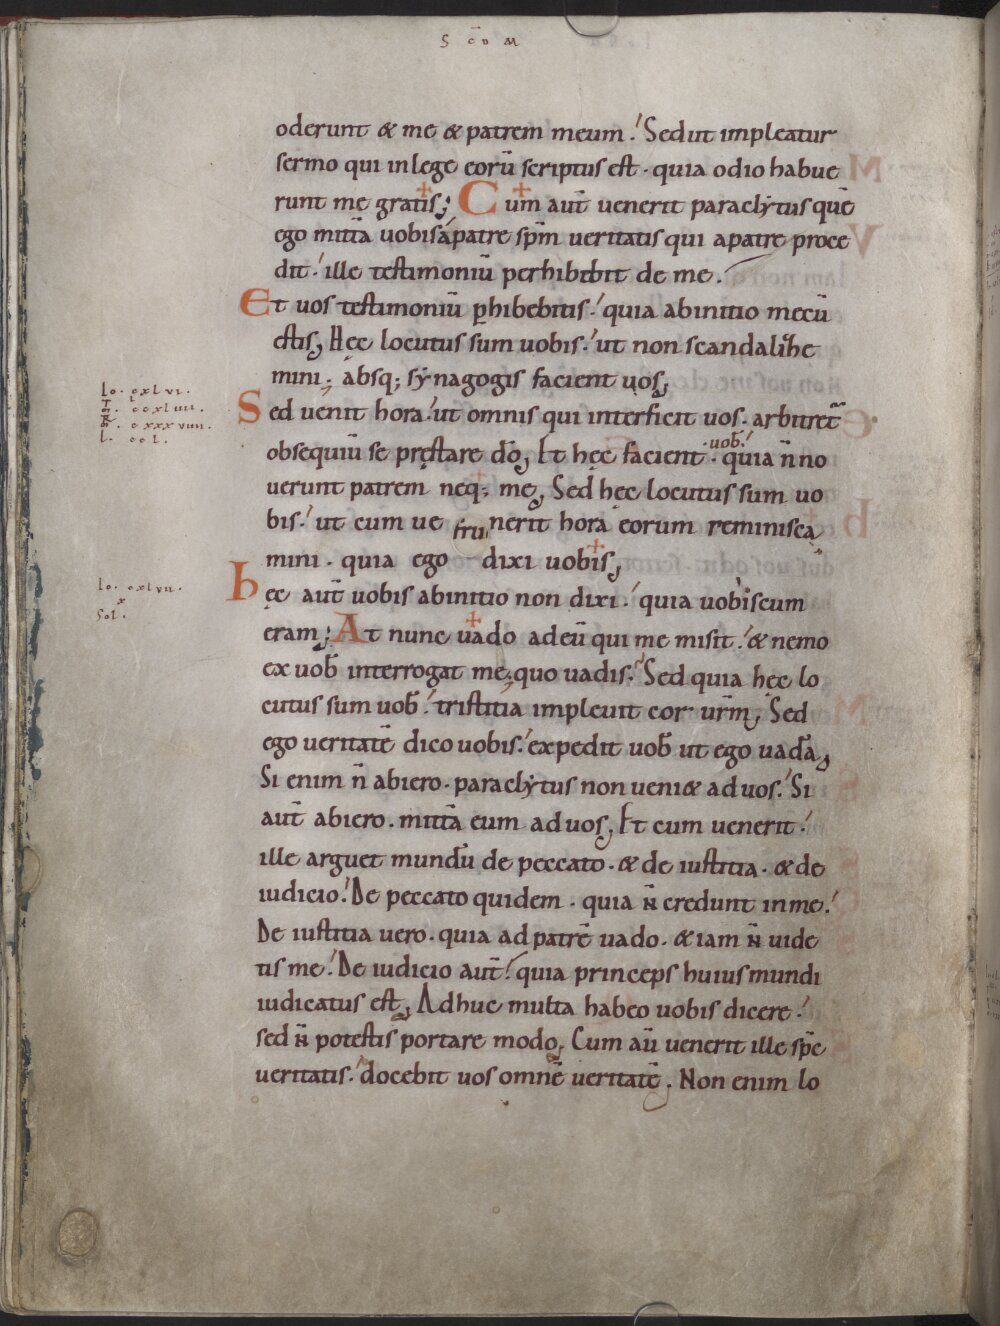 S CD M
oderunt & me & patrem meum. Sedut impleatur
sermo qui inlege eorū scriptus est. quia odio habue
runt me gratis; Cum aut̄ uenerit paraclẏtus quē
ego mittā uobis ápatre sp̄m ueritatis qui apatre proce
dit. ille testimoniū perhibebit de me.
Et uos testimoniū ꝑhibebitis. quia abinitio mecū
estis, Hęc locutus sum uobis. ut non scandalizhe
mini. absq; sẏnagogis facient uos,
Io. cxlvi.
M̄. ccxliiii.
R̄. cxxxviiii.
L. ccl.
Sed uenit hora. ut omnis qui interficit uos. arbitret̄
obsequiū se pręstare dō, Et hęc facient .uob̄. quia n̄ no
uerunt patrem neq; me, Sed hęc locutus sum uo
bis. ut cum ue fru nerit hora eorum reminisca
mini. quia ego dixi uobis,
Io. cxlvii.
x
Sol.
hęc aut̄ uobis abinitio non dixi. quia uobiscum
eram; At nunc uado adeū qui me misit. & nemo
ex uob̄ interrogat me. quo uadis. Sed quia hęc lo
cutus sum uob̄. tristitia impleuit cor ur̄m, Sed
ego ueritatē dico uobis. expedit uob̄ ut ego uadā,
Si enim n̄ abiero. paraclẏtus non ueni& ad uos. Si
aut̄ abiero. mittā eum ad uos, Et cum uenerit.
ille arguet mundū de peccato. & de iustitia. & de
iudicio. De peccato quidem. quia n̄ credunt inme.
De iustitia uero. quia ad patrē uado. & iam n̄ uide
tis me. De iudicio aut̄. quia princeps huius mundi
iudicatus est, Adhuc multa habeo uobis dicere.
sed n̄ potestis portare modo, Cum aū uenerit ille sp̄c
ueritatis. docebit uos omnē ueritatē. Non enim lo